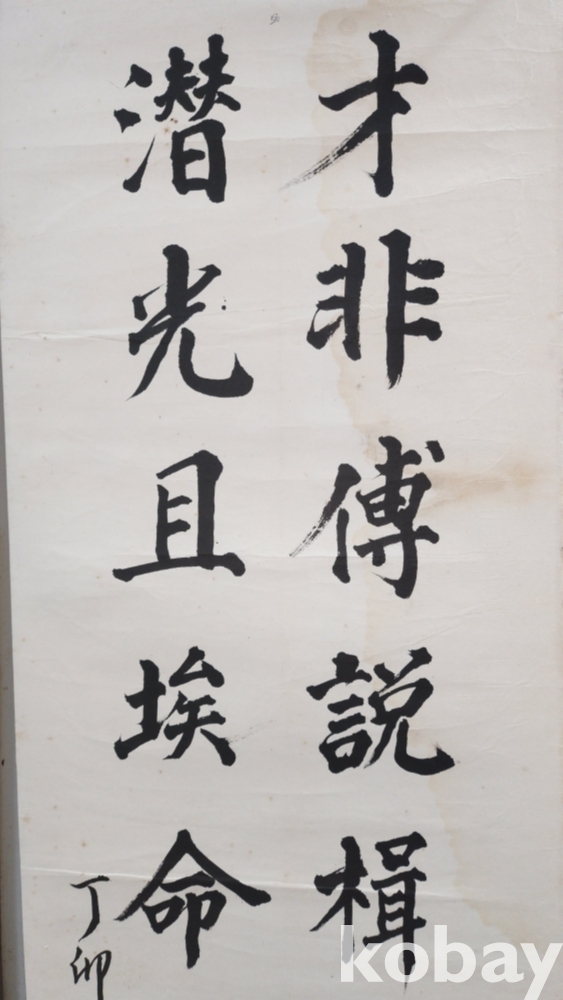 才非傅説楫
潜光且埃命
丁卯
kobay